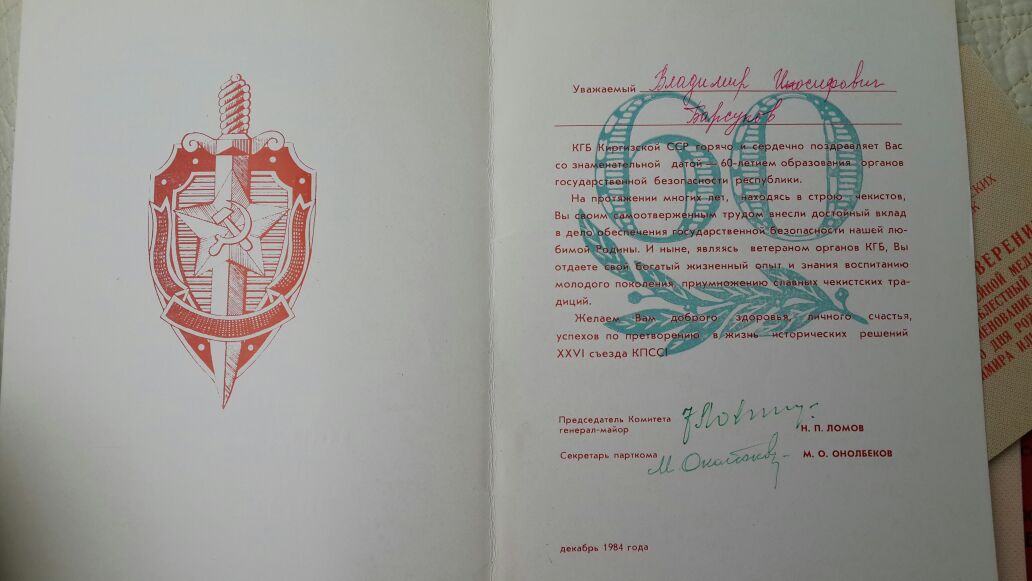 Уважаемый Владимир Иосифович
Барсуков
КГБ Киргизской ССР горячо и сердечно поздравляет Вас
со знаменательной датой — 60-летием образования органов
государственной безопасности республики.
На протяжении многих лет, находясь в строю чекистов,
Вы своим самоотверженным трудом внесли достойный вклад
в дело обеспечения государственной безопасности нашей лю-
бимой Родины. И ныне, являясь ветераном органов КГБ, Вы
отдаете свой богатый жизненный опыт и знания воспитанию
молодого поколения, приумножению славных чекистских тра-
диций.
Желаем Вам доброго здоровья, личного счастья,
успехов по претворению в жизнь исторических решений
XXVI съезда КПСС!
60
Председатель Комитета
генерал-майор Н. П. ЛОМОВ
Секретарь парткома М. О. ОНОЛБЕКОВ
декабрь 1984 года